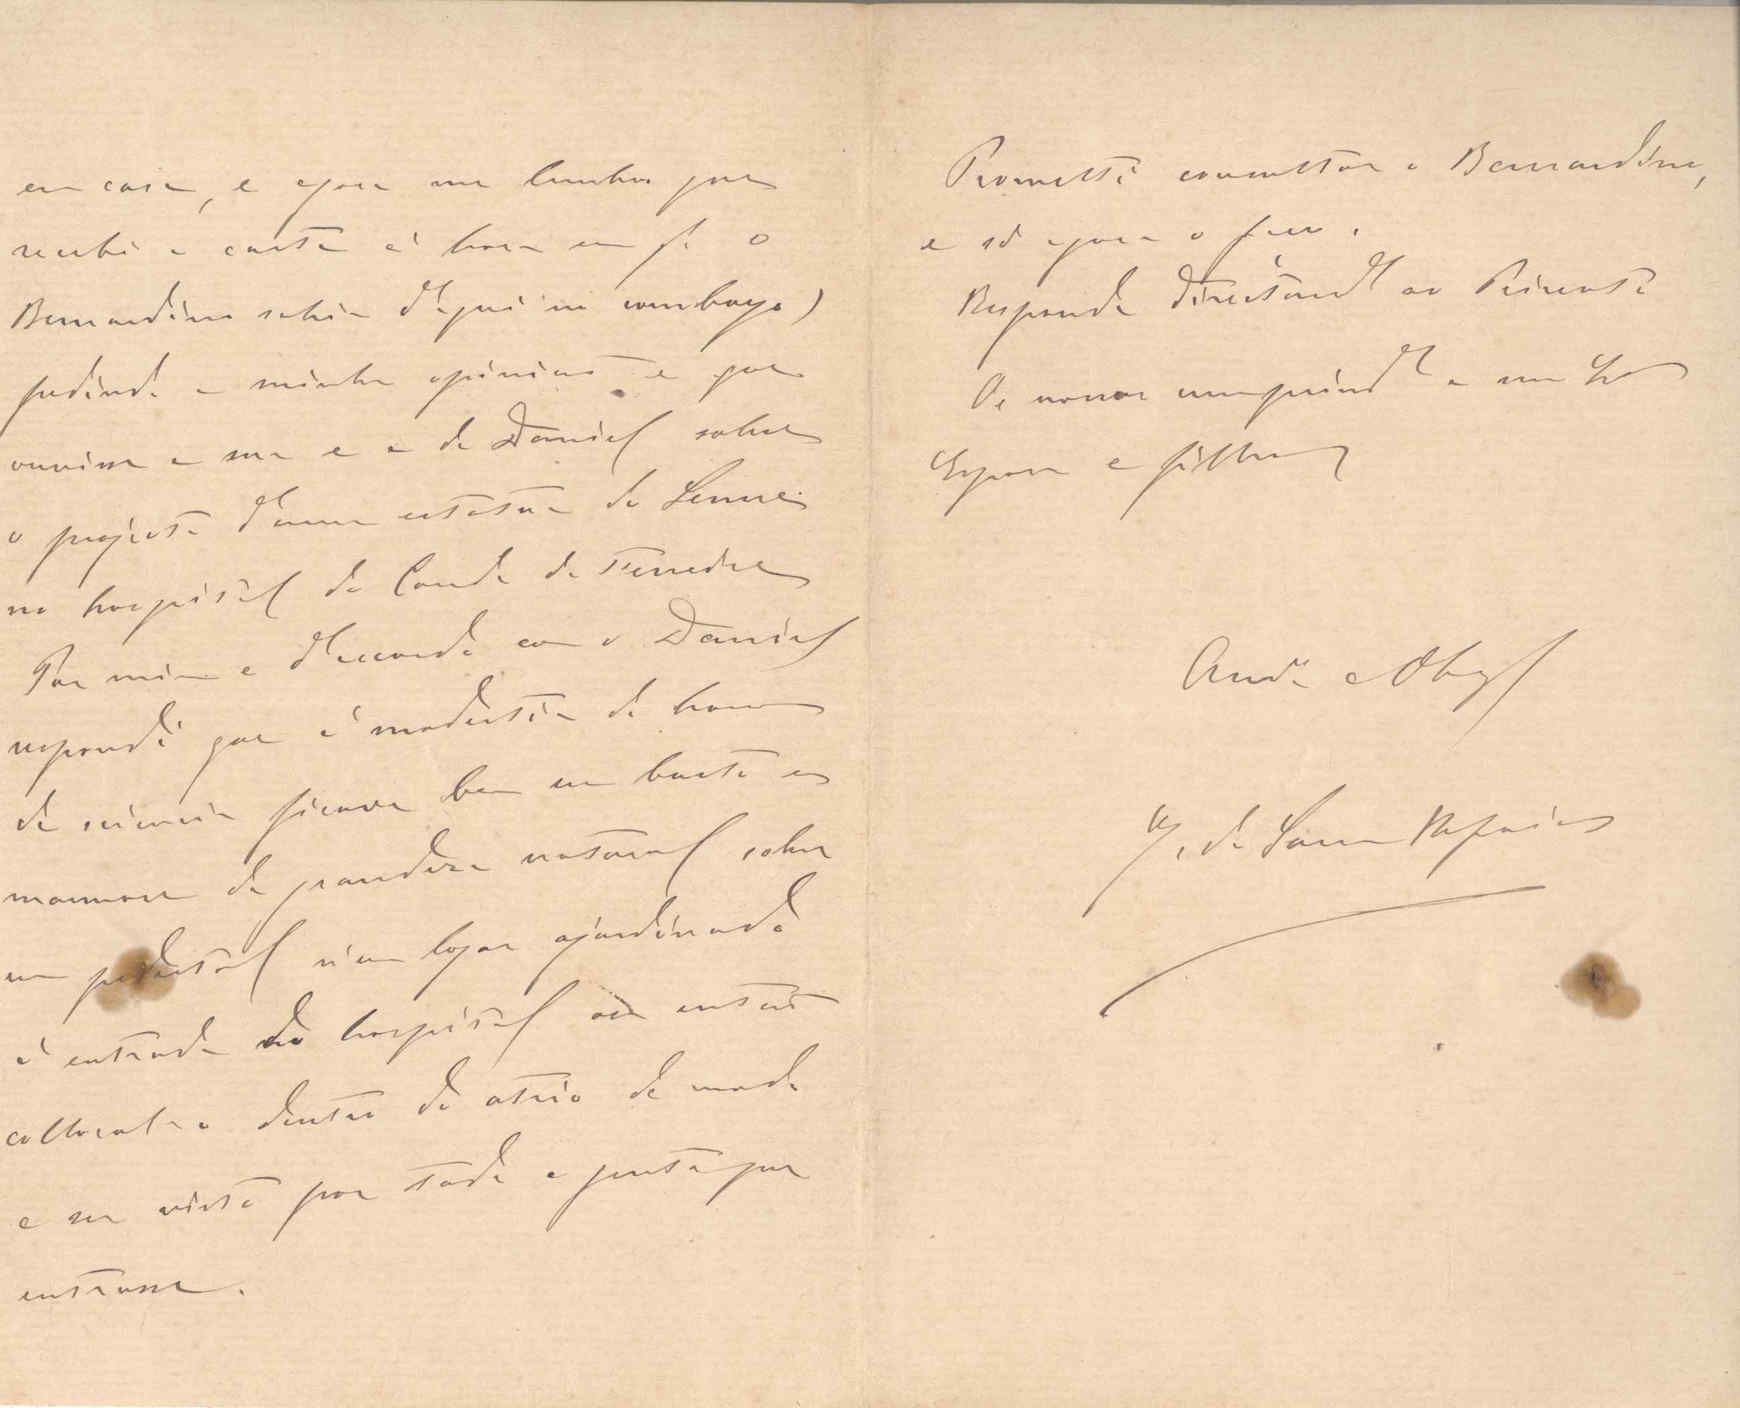 em casa, e agora me lembra que
recebi a carta á hora em q. o
Bernardino sahia d'aqui no comboyo)
pedindo a minha opinião e que
ouvisse a sua e a do Daniel sobre
o projecto d'uma estatua do Senna
no hospital do Conde de Ferreira
Por mim e d'accordo com o Daniel
respondi que á modestia do homem
de sciencia ficava bem um busto em
marmore de grandeza natural sobre
um pedestal n'um logar ajardinado
á entrada do hospital ou então
collocal-o dentro do atrio de modo
a ser visto por toda a gente que
entrasse.
Prometti consultar o Bernardino,
e só agora o faço.
Responda directam.te ao
Os nossos cumprim.tos a sua Ex.ma
Esposa e filhos
Am.º e Obrg.
de Sousa Refoios